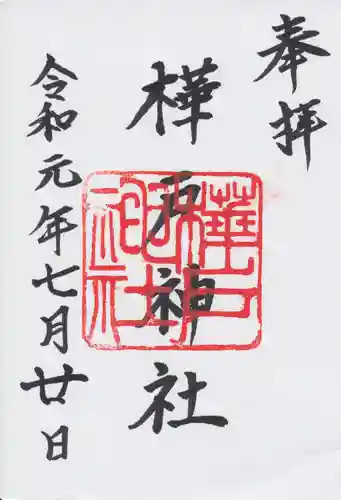 奉拝
樺戸神社
令和元年七月廿日
樺戸
神社